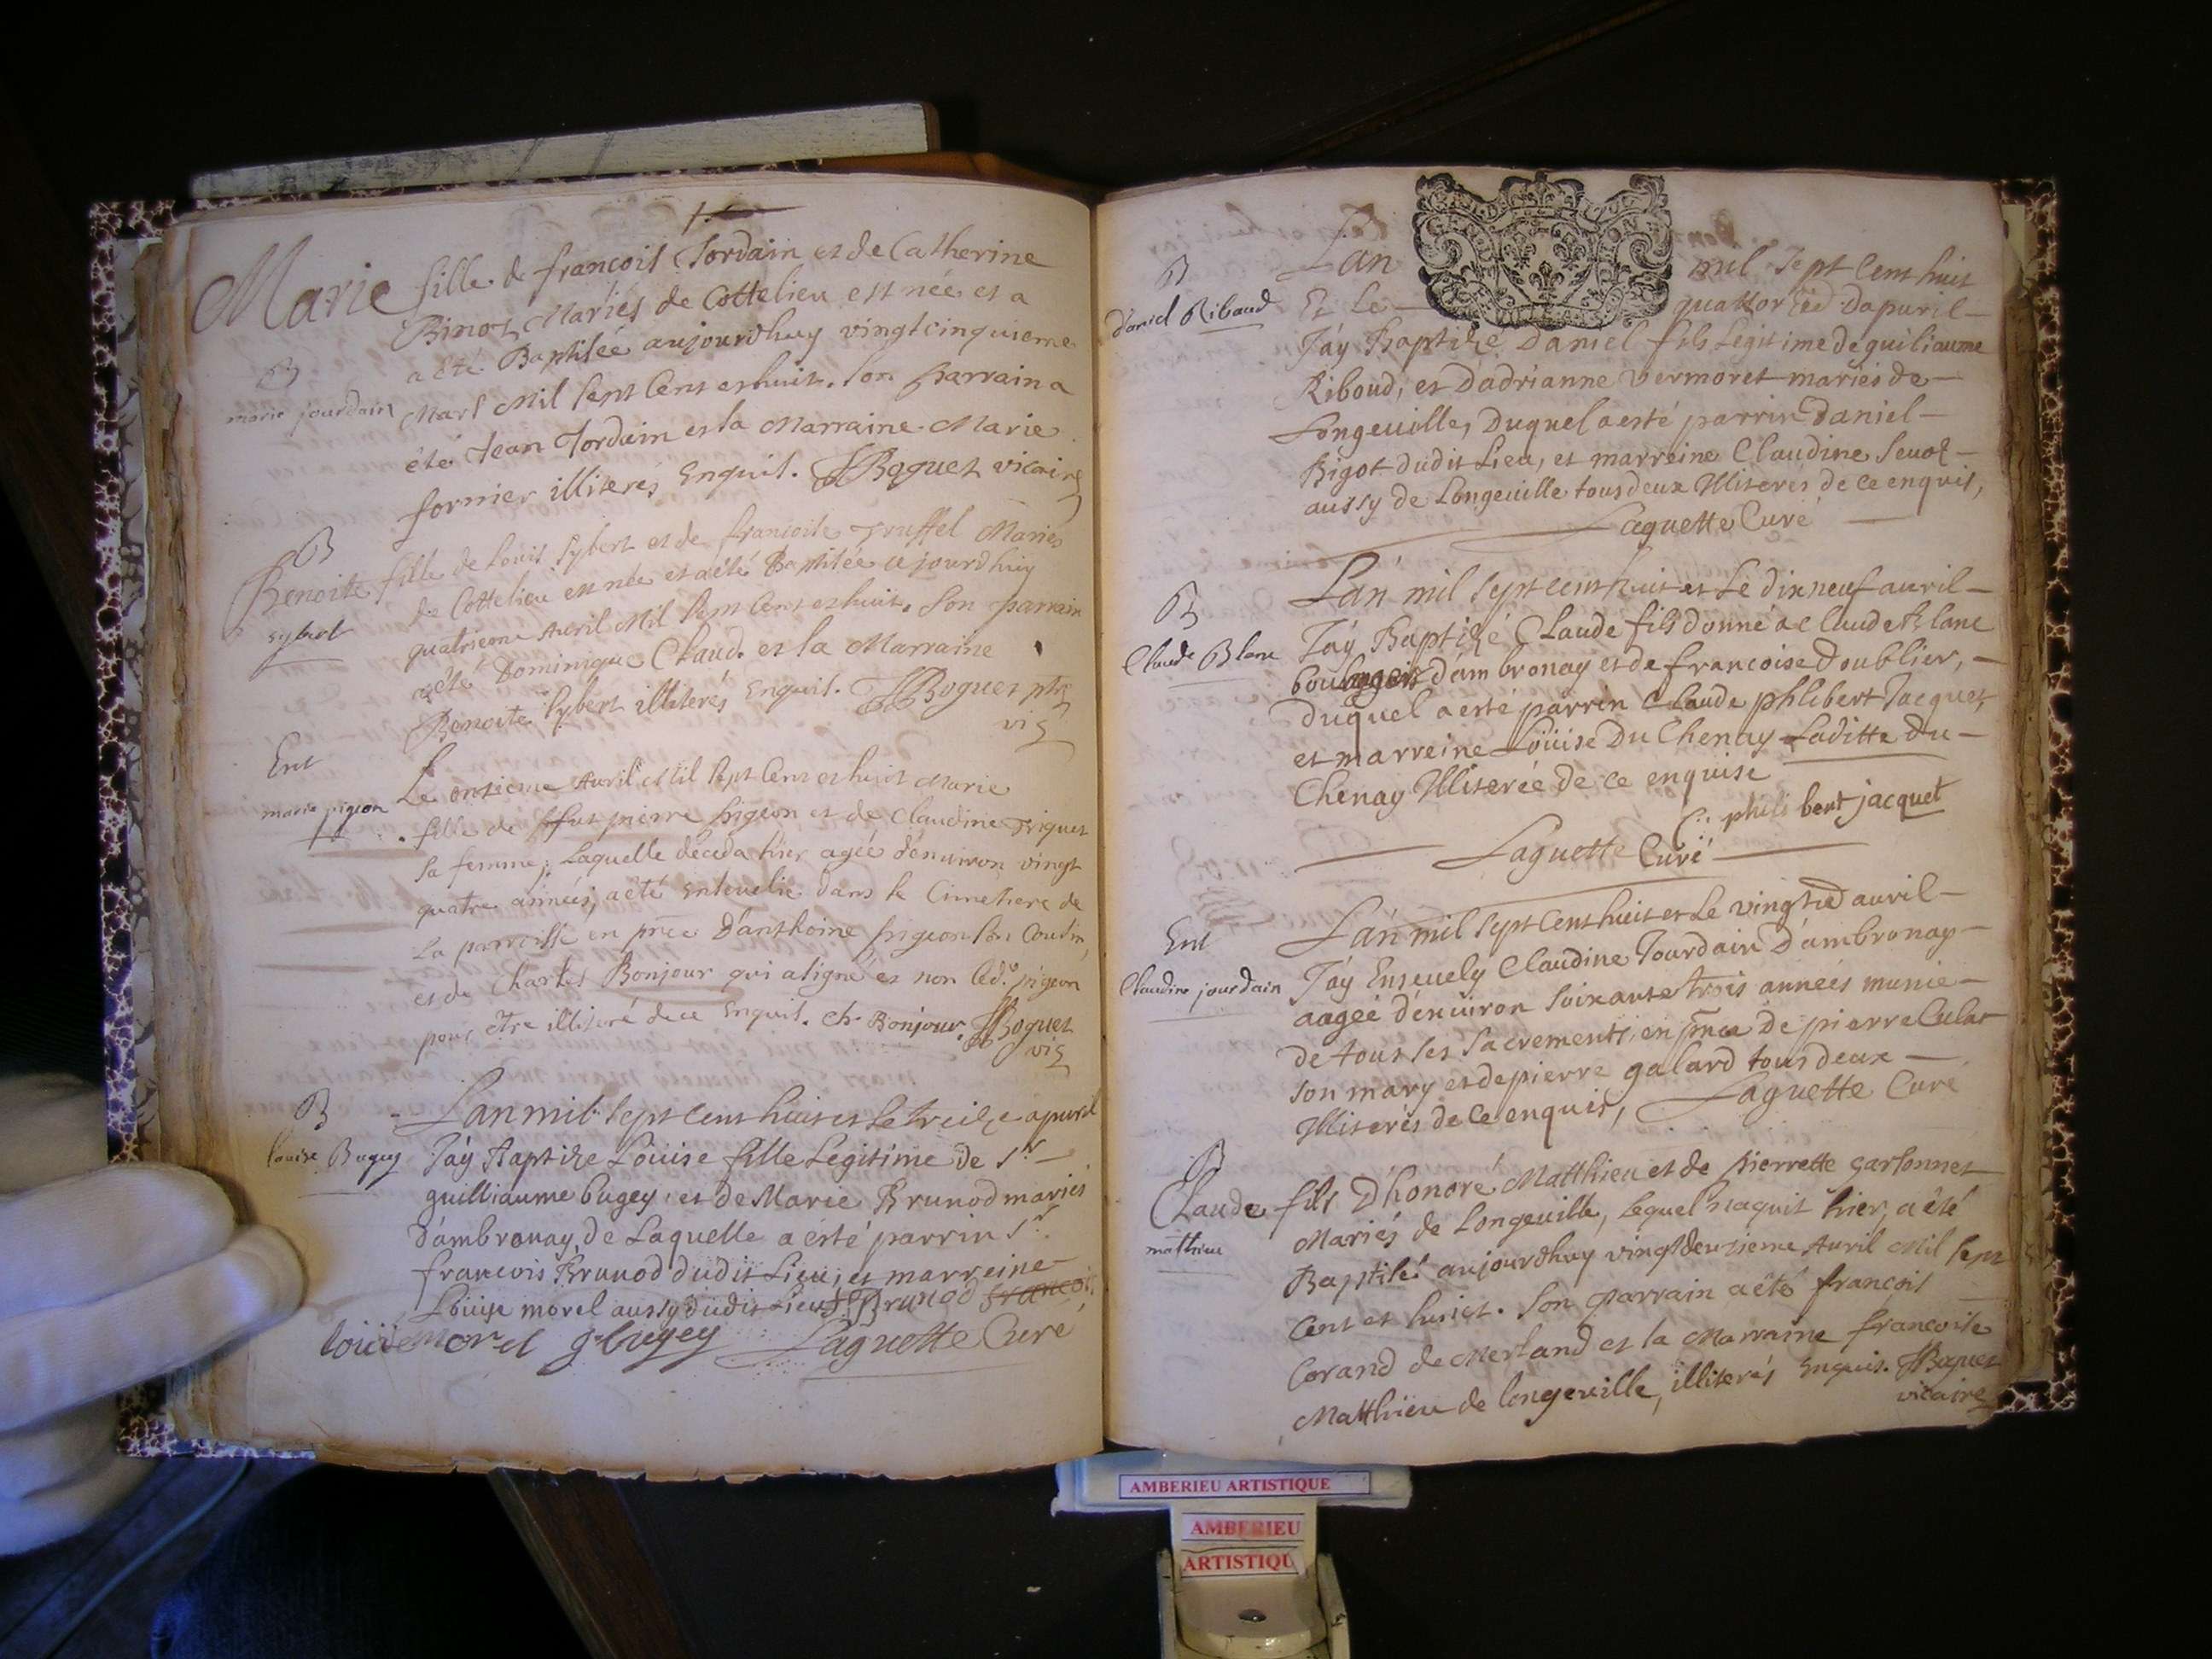 Marie fille de francois Jordain et de Catherine
Binot Mariés de Cottelieu est née et a
a été Baptisée aujourdhuy vingtcinquieme
B
marie jourdain
Mars Mil sept Cent et huit. Son parrain a
été Jean Jordain et la Marraine Marie
fornier illiterés Enquis. Boguet vicaire
B
Benoite fille de Louis Sybert et de francoise Truffel Mariés
sybert
de Cottelieu est née et a été Baptisée ce jourdhuy
quatrieme Avril Mil sept Cent et huit. Son parrain
a été Dominique Claud. et la Marraine
Benoite Sybert illiterés Enquis. Boguet ptre
vic
Ent
marie pigeon
Le onzieme Avril Mil sept Cent et huit Marie
fille de pierre pigeon et de Claudine Triquet
sa femme, Laquelle déceda hier agée d'environ vingt
quatre années, a été Ensevelie dans le Cimetiere de
la parroisse en pnce d'anthoine pigeon son Cousin
et de Charles Bonjour qui a signé et non led. pigeon
pour être illiteré de ce Enquis. Ch. Bonjour. Boguet
vic
B
louise Bugey
Lan mil sept cent huit et le treize apuril
J'ay Baptize Loüise fille Legitime de Sr
guilliaume bugey, et de Marie Brunod mariés
d'ambronay, de Laquelle a esté parrin Sr
francois Brunod dudit Lieu, et marreine
Loüise morel aussy dudit Lieu f. Brunod francois
loüise morel g bugey Laguette Curé
B
daniel Ribaud
Lan mil sept Cent huit
Et Le quattorzie d'apuril
J'ay Baptize Daniel fils Legitime de guiliaume
Riboud, et d'adrianne vermoret mariés de
Longeuille, Duquel a esté parrin daniel
Bigot dudit Lieu, et marreine Claudine
aussy de Longeuille tous deux Illiterés de ce enquis,
Laguette Curé
B
Claude Blanc
L'an mil sept cent huit et Le dix neuf auril
J'ay Baptizé Claude fils donné a Claude Blanc
d'ambronay et de francoise doublier,
duquel a esté parrin Claude philibert Jacquet
et marreine Loüise Du Chenay Laditte du
Chenay Illiterée de ce enquise
C. philibert jacquet
Laguette Curé
Ent
Claudine jourdain
L'an mil sept Cent huit et Le vingtie d'auril
J'ay Enseuely Claudine Jourdain D'ambronay
aagée d'enuiron soixante trois années munie
de tous les sacrements, en pnce De pierre Culat
son mary et de pierre galard tous deux
Illiterés de Ce enquis, Laguette Curé
B
Claude fils D'honoré Matthieu et de Pierrette garsonnet
matthieu
Mariés de Longeuille, Lequel naquit hier, a été
Baptisé aujourdhuy vingtdeuxieme Auril Mil sept
Cent et huict. Son parrain a êté francois
Corand de Merland et la Marraine francoise
Matthieu de longeuille, illiterés Enquis. Boguet
vicaire
AMBERIEU ARTISTIQUE
AMBERIEU
ARTISTIQU